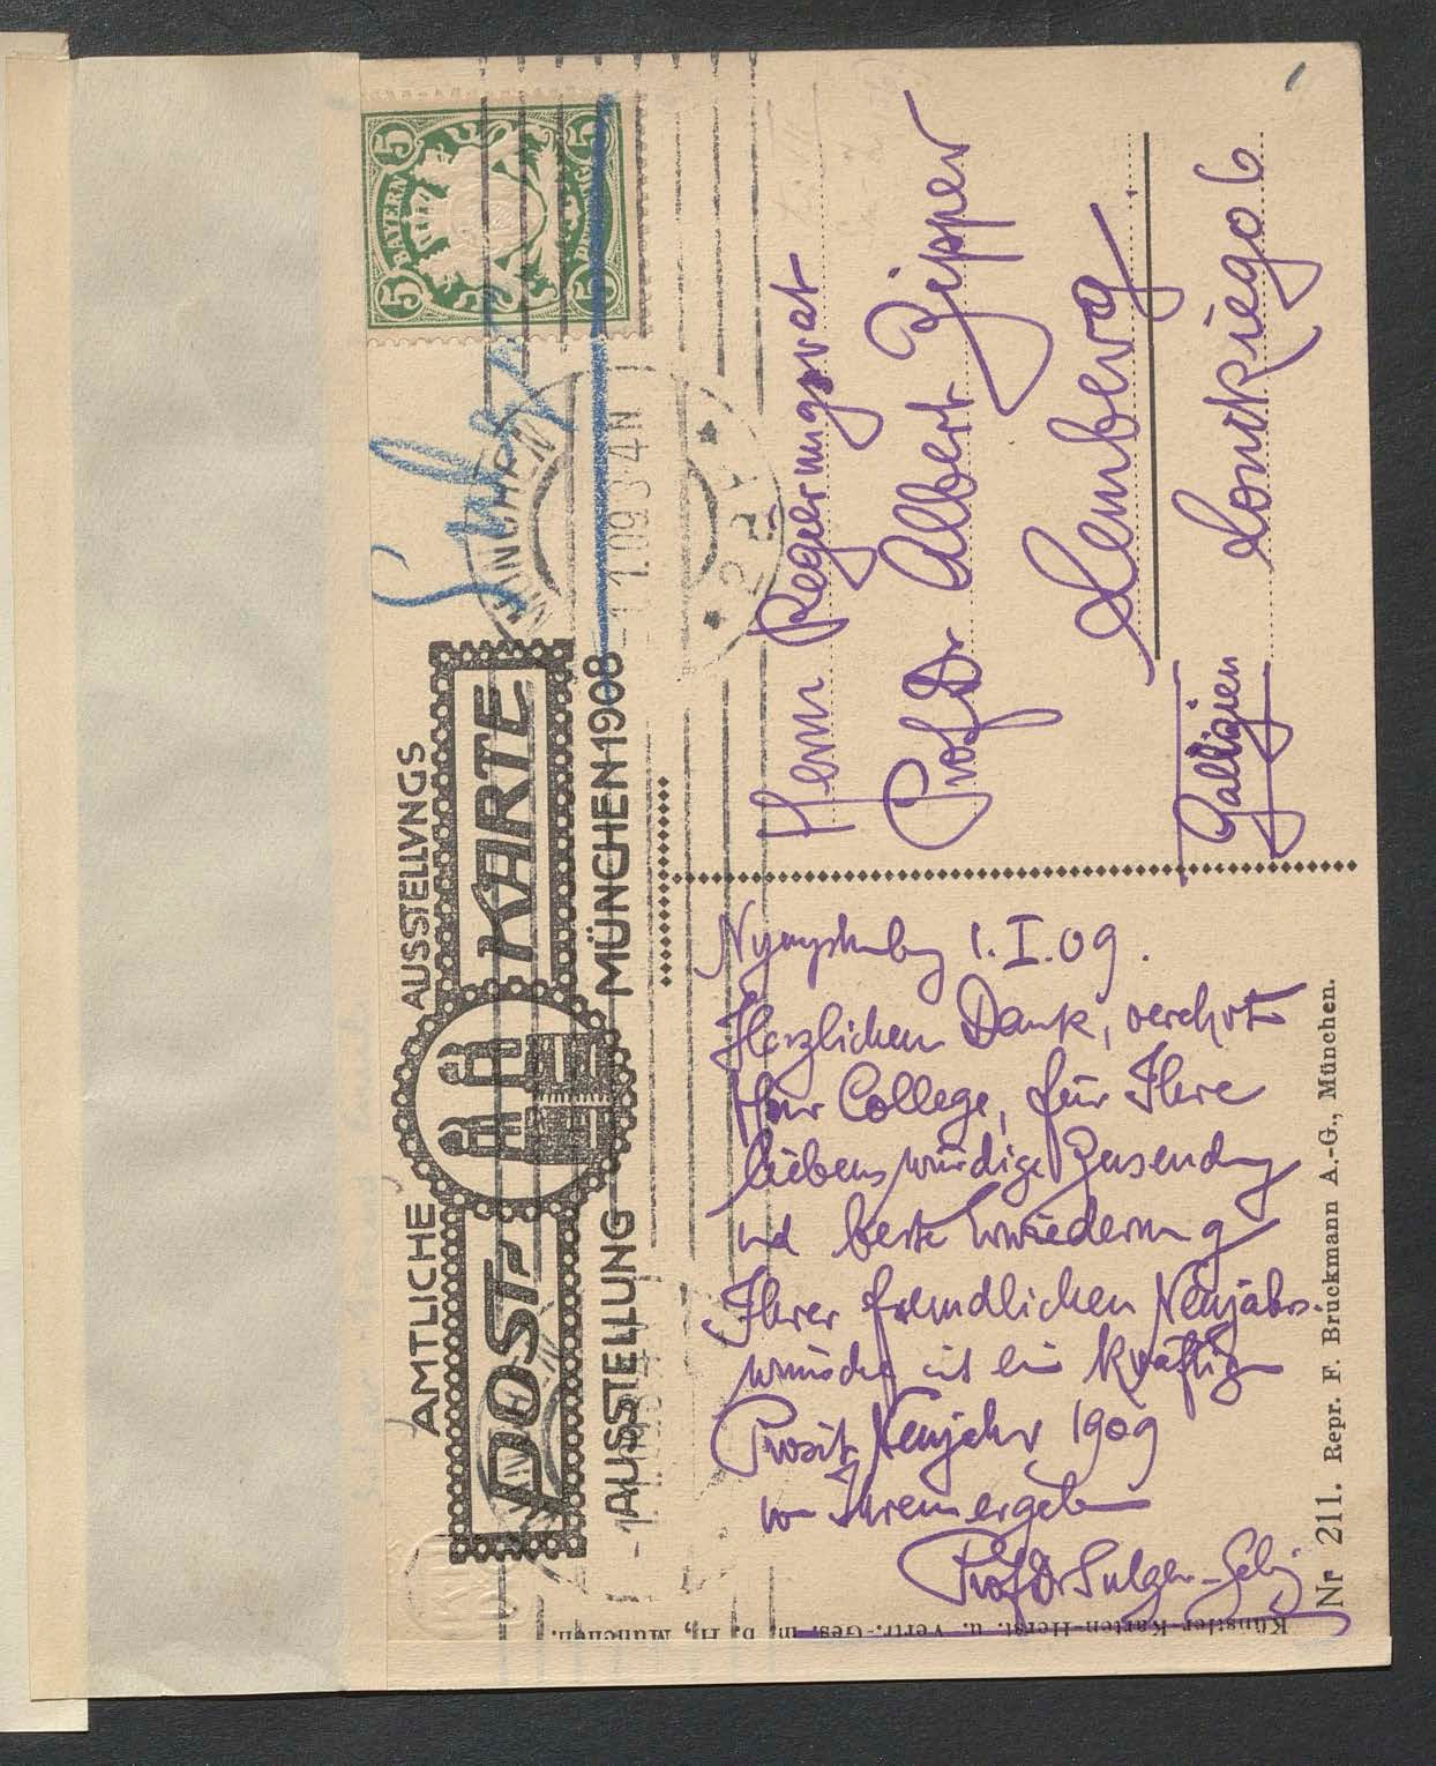 AMTLICHE AUSSTELLVNGS
POST KARTE
AUSSTELLUNG MÜNCHEN 1908
BAYERN
5 5
5 5
PFENNIG
MÜNCHEN
1.1.09 3-4 N
Sulger
Nymphenburg 1.I.09.
Herzlichen Dank, verehrter
Herr College, für Ihre
liebenswürdige Zusendung
und beste Erwiederung
Ihrer freundlichen Neujahrs-
wünsche mit ein kräftig
Prosit Neujahr 1909
von Ihrem ergeben
Prof Dr Sulger-Gebing
Herrn Regierungsrat
Prof Dr Albert Zipper
Lemberg
Galizien Sonckiego 6
Nr 211. Repr. F. Bruckmann A.-G., München.
Künstler-Karten-Herst. u. Vertr.-Ges. m. b. H., München.